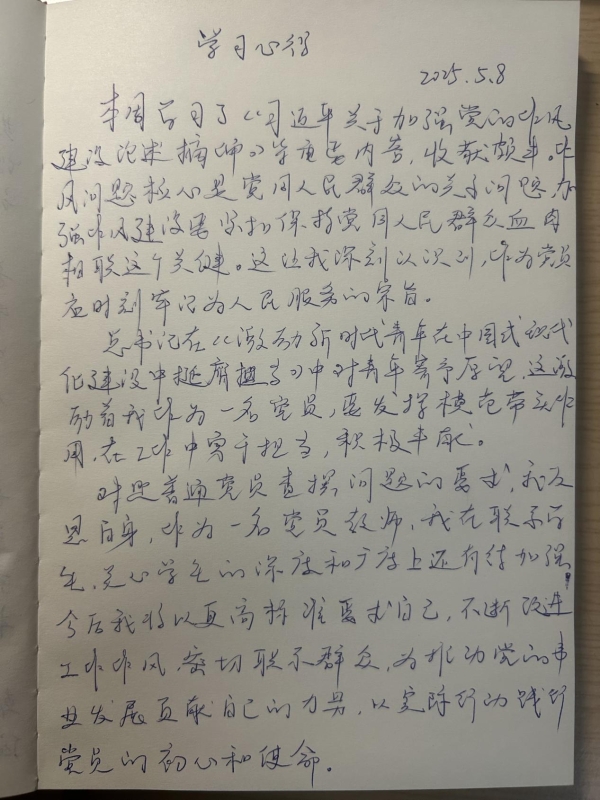 学习心得
2025.5.8
本周学习了《习近平关于加强党的作风
建设论述摘编》等重要内容，收获颇丰。作
风问题核心是党同人民群众的关系问题，加
强作风建设要紧扣保持党同人民群众血肉
相联这个关键。这让我深刻认识到，作为党员
应时刻牢记为人民服务的宗旨。
总书记在《激励新时代青年在中国式现代
化建设中挺膺担当》中对青年寄予厚望，这激
励着我作为一名党员，要发挥模范带头作
用，在工作中实干担当，积极奉献。
对照普通党员查摆问题的要求，我反
思自身，作为一名党员教师，我在联系学
生、关心学生的深度和广度上还有待加强，
今后我将以更高标准要求自己，不断改进
工作作风，密切联系群众，为推动党的事
业发展贡献自己的力量，以实际行动践行
党员的初心和使命。